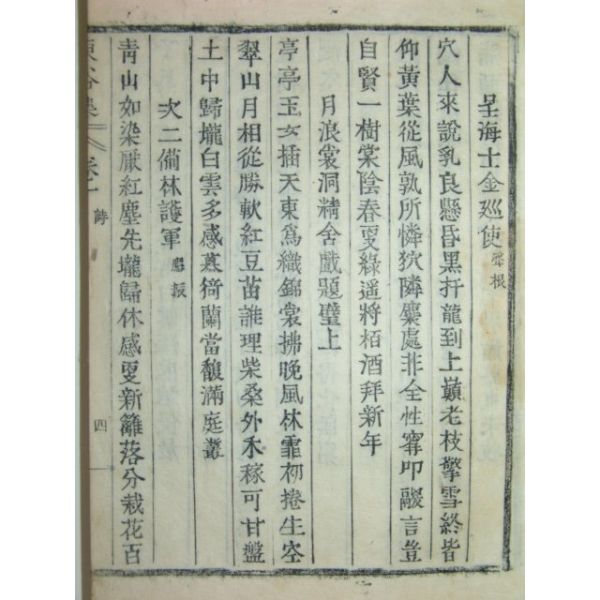 呈海士金廵使 聲根
穴人來說乳良懸昏黑扞龍到上巔老枝擎雪終皆
仰黃葉從風孰所憐狄隣麋處非全性寗叩龖言豈
自賢一樹棠陰春更綠遥將栢酒拜新年
月浪裳洞精舍戲題壁上
亭亭玉女插天東爲織錦裳拂晚風林霏初捲生空
翠山月相從勝軟紅豆苗誰理柴桑外禾稼可甘盤
土中歸壠白雲多感慕猗蘭當馥滿庭叢
次二衛林護軍 振
靑山如染厭紅塵先壠歸休感更新籬落分栽花百
東谷集 卷一 詩 四